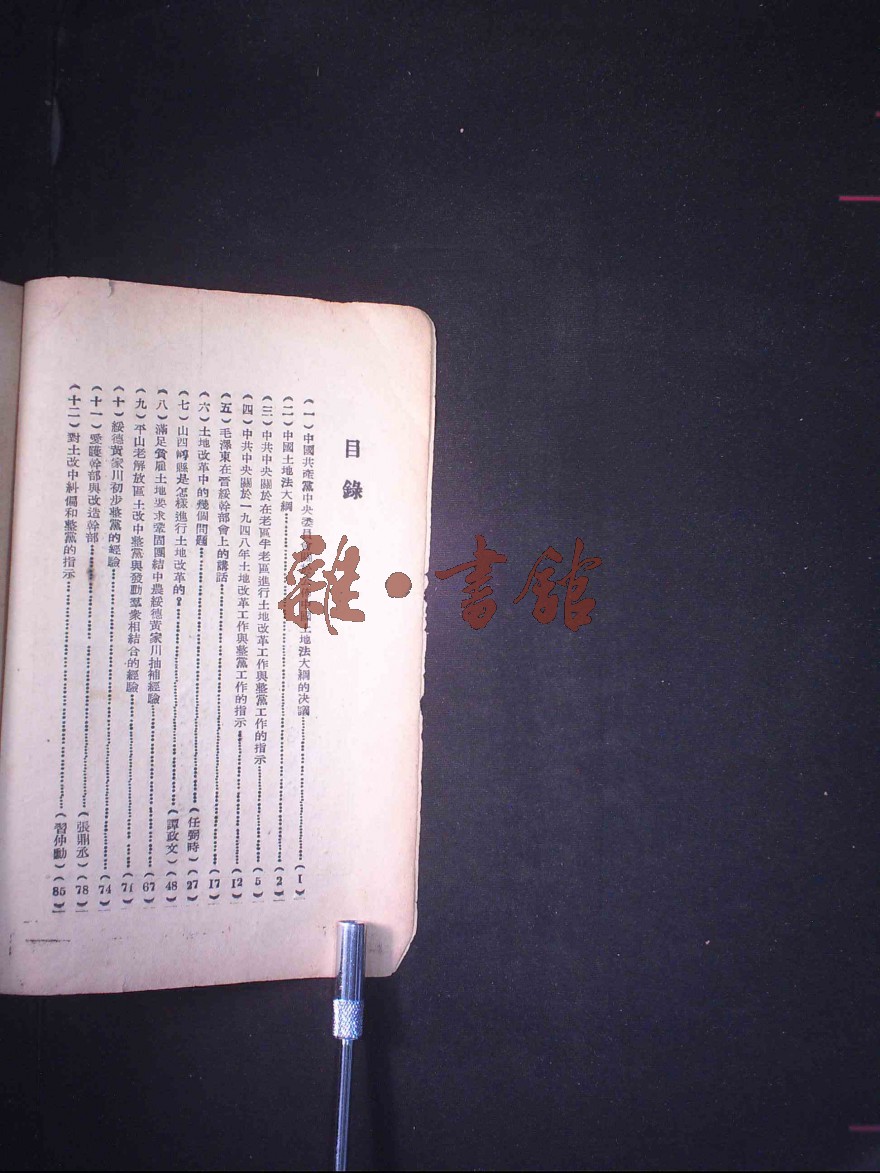 目錄
（一）中國共產黨中央委員會 中國土地法大綱的决議（1）
（二）中國土地法大綱（2）
（三）中共中央關於在老區半老區進行土地改革工作與整黨工作的指示（5）
（四）中共中央關於一九四八年土地改革工作與整黨工作的指示（12）
（五）毛澤東在晉綏幹部會上的講話（17）
（六）土地改革中的幾個問題（任弼時）（27）
（七）山西崞縣是怎樣進行土地改革的？（譚政文）（48）
（八）滿足貧雇土地要求鞏固團結中農綏德黃家川抽補經驗（67）
（九）平山老解放區土改中整黨與發動羣衆相結合的經驗（71）
（十）綏德黃家川初步整黨的經驗（74）
（十一）愛護幹部與改造幹部（張鼎丞）（78）
（十二）對土改中糾偏和整黨的指示（習仲勳）（85）
雜·書館